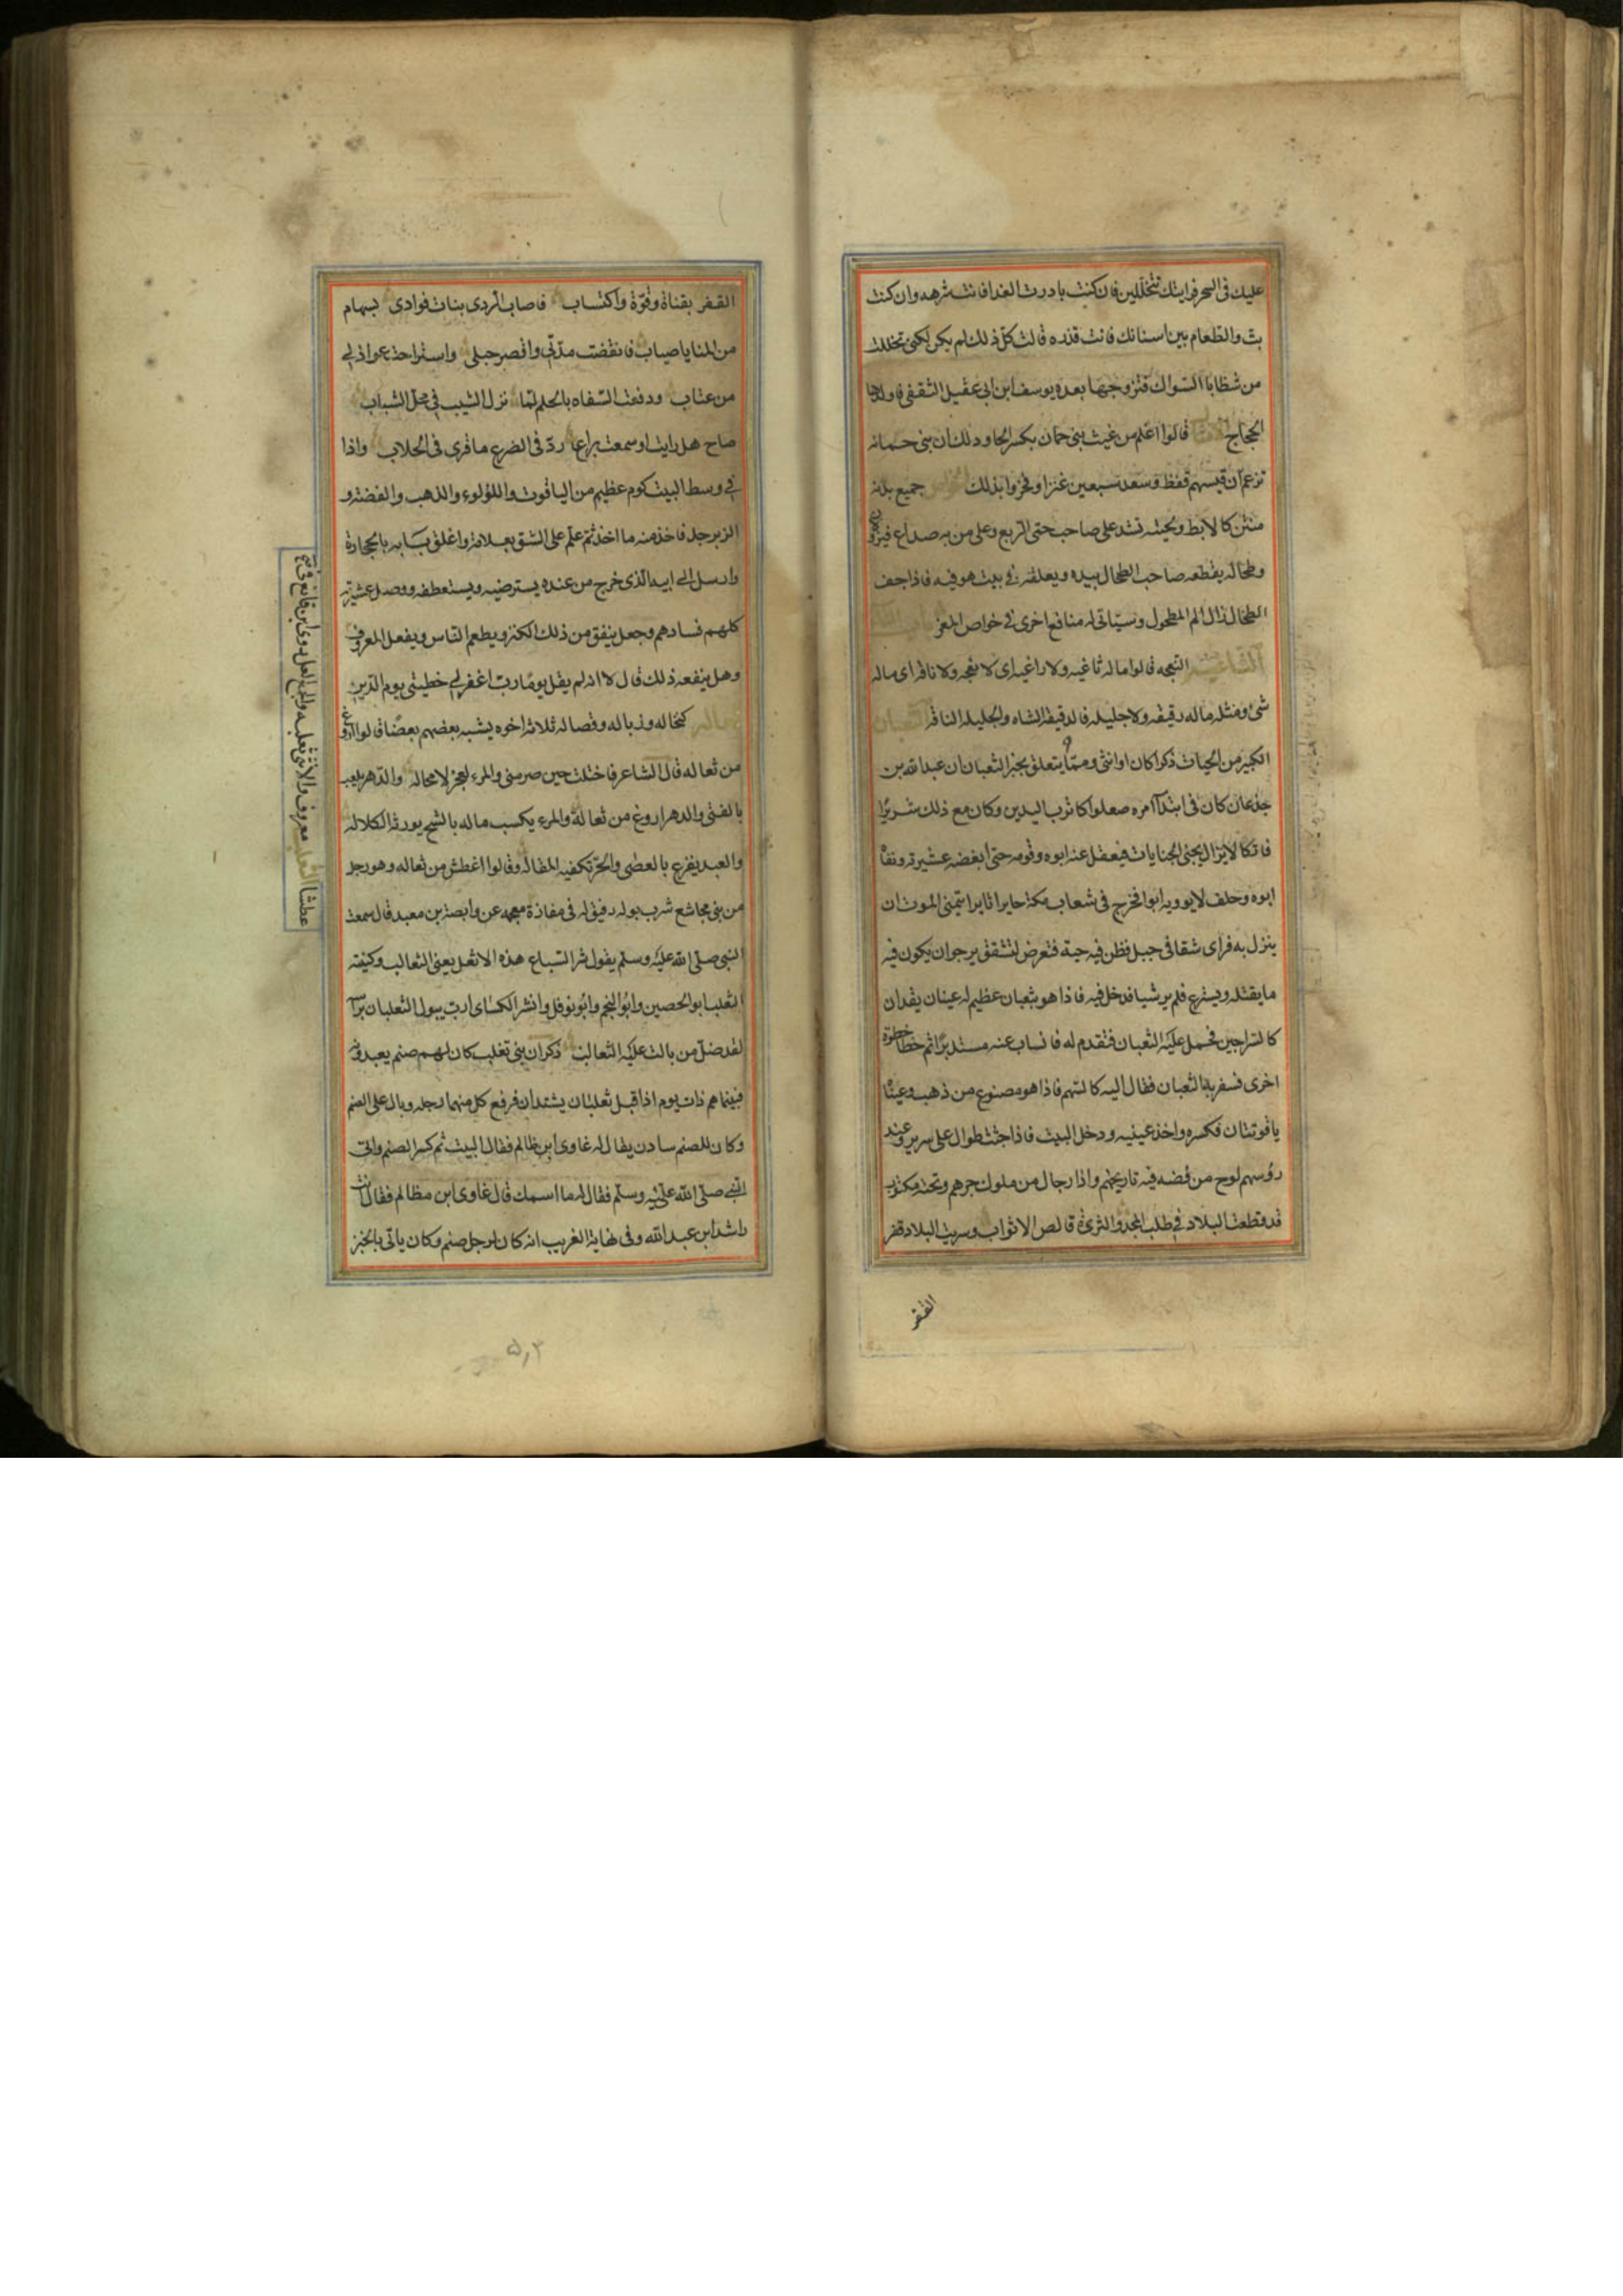 عليك فى السحر فرايتك تتخللين فان كنت بادرت الغدا فانت شرهه وان كنت
بت والطعام بين اسنانك فانت قذره قالت كل ذلك لم يكن لكنى تخللت
من شظايا السواك فتزوجها بعده يوسف ابن ابى عقيل الثقفى فاولدها
الحجاج قالوا اغلم من تيس بنى حمان بكسر الحا وذلك ان بنى حمانه
تزعم ان تيسهم قفط وسعد سبعين عنزا وفخروا بذلك جميع بدنه
منتن كالابط ولحيته تشد على صاحب حتى الربع وعلى من به صداع فيزول
وطحاله يقطعه صاحب الطحال بيده ويعلقه فى بيت هو فيه فاذا جف
الطحال زال الم المطحول وسياتى له منافع اخرى فى خواص المعز
الثاغية النعجه قالوا ماله ثاغيه ولا راغيه اى لا نعجه ولا ناقه اى ماله
شئ ومثله ماله دقيقه ولا جليله فالدقيقه الشاه والجليله الناقه الثعبان
الكبير من الحيات ذكرا كان او انثى ومما يتعلق بخبر الثعبان ان عبد الله بن
جذعان كان فى ابتدآ امره صعلوكا ترب اليدين وكان مع ذلك شريرا
فاتكا لا يزال يجنى الجنايات فيعقل عنه ابوه وقومه حتى ابغضه عشيرته ونفاه
ابوه وحلف لا يوويه ابدا فخرج فى شعاب مكة حايرا ثايرا يتمنى الموت ان
ينزل به فراى شقا فى جبل فظن فيه حية فتعرض للشق يرجو ان يكون فيه
ما يقتله ويستريح فلم ير شيا فدخل فيه فاذا هو بثعبان عظيم له عينان يقدان
كالسراجين فحمل عليه الثعبان فتقدم له فانساب عنه مستديرا ثم خطا خطوة
اخرى فسفر به الثعبان فقال اليه كالسهم فاذا هو مصنوع من ذهب وعيناه
ياقوتتان فكسره واخذ عينيه ودخل البيت فاذا جثث طوال على سرير وعند
رؤسهم لوح من فضه فيه تاريخهم واذا رجال من ملوك جرهم وتحته مكتوب
قد قطعت البلاد فى طلب المجد والثروة قالص الاثواب وسريت البلاد قفر
القفر
القفر بقناة وقوة واكتساب فاصاب الردى بنات فوادى بسهام
من المنايا صياب فانقضت مدتى واقصر جهلى واستراحت عواذلى
من عتاب ودفعت السفاه بالحلم لما نزل الشيب فى محل الشباب
صاح هل رايت او سمعت براع رد فى الضرع ما قرى فى الحلاب واذا
فى وسط البيت كوم عظيم من الياقوت واللؤلوء والذهب والفضة و
الزبرجد فاخذ منه ما اخذ ثم علم على الشق بعلامة واغلق بابه بالحجارة
وارسل الى ابيه الذى خرج من عنده يسترضيه ويستعطفه ووصل عشيرته
كلهم فسادهم وجعل ينفق من ذلك الكنز ويطعم الناس ويفعل المعروف
وهل ينفعه ذلك قال لا انه لم يقل يوما رب اغفر لى خطيئتى يوم الدين
ثعاله كنخاله وذباله وفضاله ثلاثه اخوه يشبه بعضهم بعضا قالوا اروغ
من ثعاله قال الشاعر فاختلت حين صرمتنى والمرء يعجز لا محاله والدهر يلعب
بالفتى والدهر اروغ من ثعالة والمرء يكسب ماله بالشح يورثه الكلاله
والعبد يقرع بالعصى والحر تكفيه المقاله وقالوا اعطش من ثعاله وهو رجل
من بنى مجاشع شرب بول رفيق له فى مفازة عن وابصة بن معبد قال سمعت
النبى صلى الله عليه وسلم يقول شر السباع هذه الاثعل يعنى الثعالب وكنيته
الثعلب ابو الحصين وابو النجم وابو نوفل وانشد الكساى ارب يبول الثعلبان براسه
لقد ضل من بالت عليه الثعالب ذكر ان بنى تغلب كان لهم صنم يعبدونه
فبينما هم ذات يوم اذا قبل ثعلبان يشتدان فرفع كل منهما رجله وبال على الصنم
وكان للصنم سادن يقال له غاوى ابن ظالم فقال البيت ثم كسر الصنم واتى
النبى صلى الله عليه وسلم فقال له ما اسمك قال غاوى ابن مظالم فقال انت
راشد ابن عبد الله وفى نهاية الغريب انه كان لرجل صنم وكان ياتى بالخبز
عطشا الثعلب معروف والانثى ثعلبه والجمع اثعل روى ابن قانع فى
۵۰۲